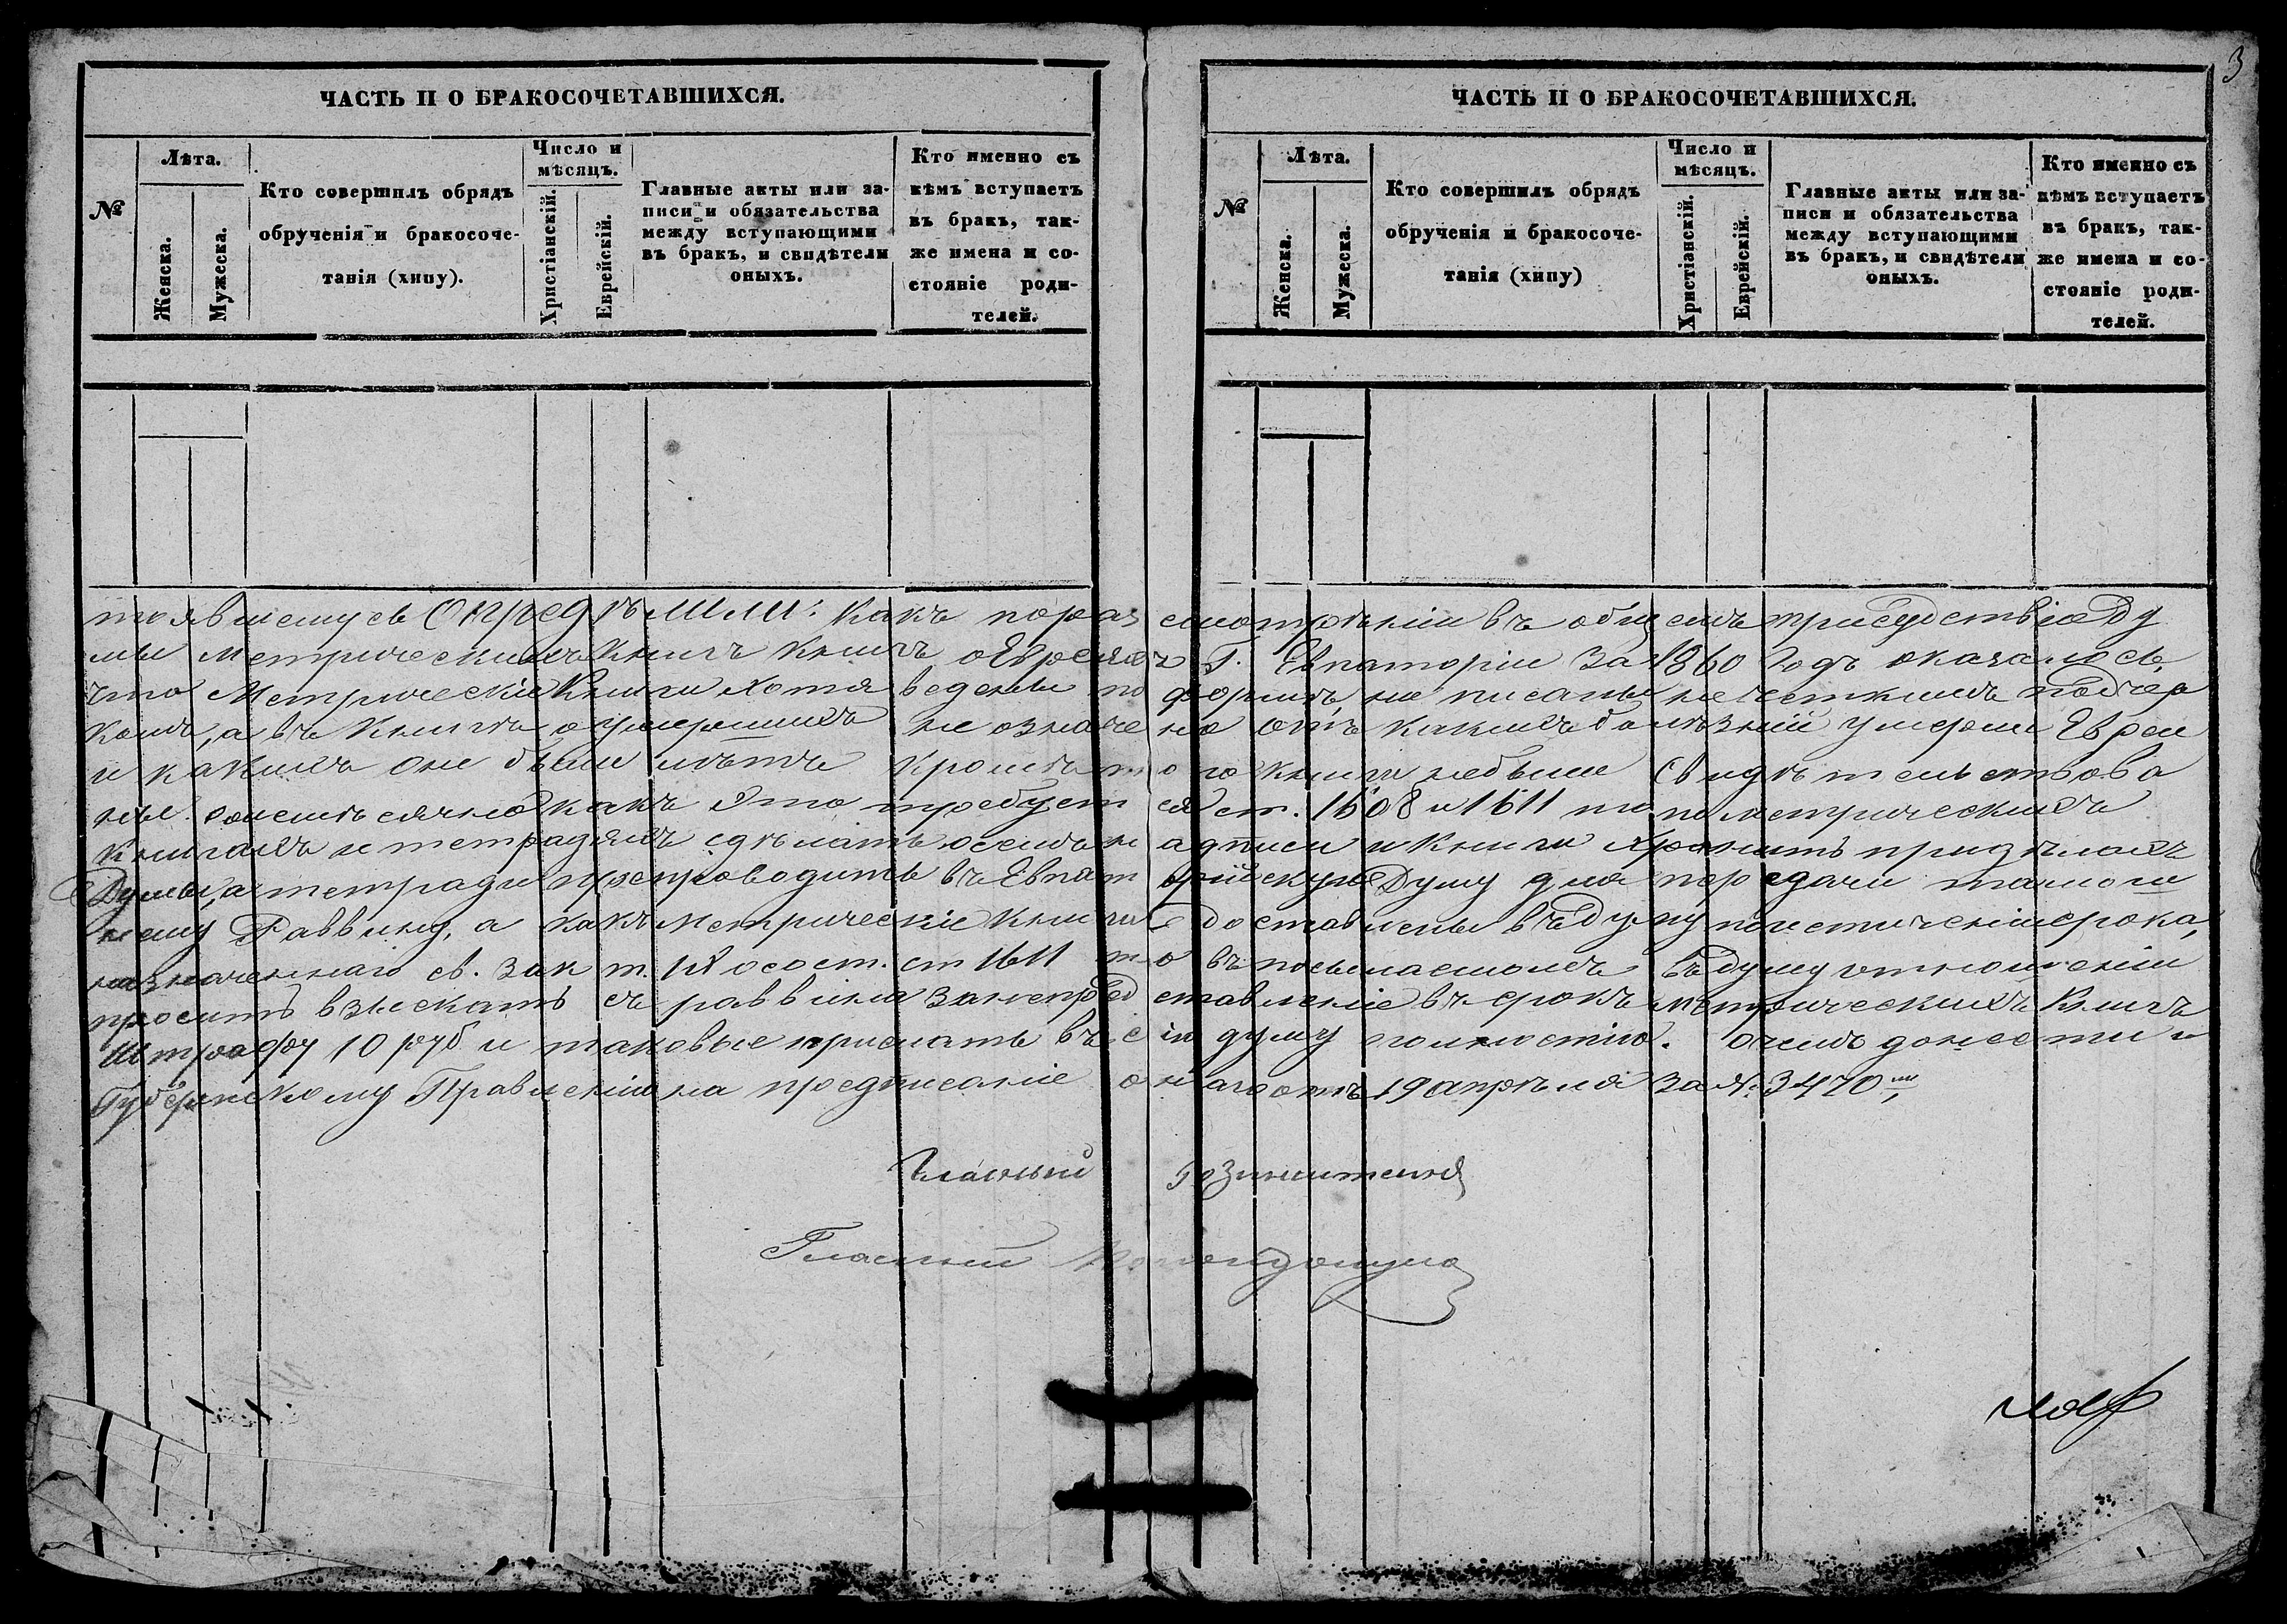 3
ЧАСТЬ II О БРАКОСОЧЕТАВШИХСЯ.
№
Лѣта.
Женска.
Мужеска.
Кто совершилъ обрядъ
обрученія и бракосоче-
танія (хипу).
Число и
мѣсяцъ.
Христіанскій.
Еврейскій.
Главные акты или за-
писи и обязательства
между вступающими
въ бракъ, и свидѣтели
оныхъ.
Кто именно съ
кѣмъ вступаетъ
въ бракъ, так-
же имена и со-
стояніе роди-
телей.
ЧАСТЬ II О БРАКОСОЧЕТАВШИХСЯ.
№
Лѣта.
Женска.
Мужеска.
Кто совершилъ обрядъ
обрученія и бракосоче-
танія (хипу)
Число и
мѣсяцъ.
Христіанскій.
Еврейскій.
Главные акты или за-
писи и обязательства
между вступающими
въ бракъ, и свидѣтели
оныхъ.
Кто именно съ
кѣмъ вступаетъ
въ бракъ, так-
же имена и со-
стояніе роди-
телей.
тоявшемусь Опредѣлили: Какъ по раз смотрѣніи въ общемъ присудствіе Ду
мы Метрическихъ Книгъ Книгъ о Евреяхъ Г. Евпаторіи за 1860 Годъ оказалось,
что Метрическіе Книги хотя ведены по формѣ, но писаны не четкимъ подчер
комъ, а въ Книгѣ о умершихъ не означе но отъ какихъ болѣзній умерли Евреи
и какихъ они были лѣтъ Кромѣ т ого книги небыли Свидѣтельствова
ны помесячно какъ это требует ся ст. 1608 и 1611 то по метрическимъ
книгамъ и тетрадямъ сдѣлать осемъ н адписи и Книги хранить при дѣлахъ
Думы, а тетради препроводить въ Евпат орійскую Думу для передачи тамош
нему Раввину, а какъ Метрическіе Книги доставлены въ думу по истеченіи срока,
назначеннаго св. зак т. IX о сост. ст 1611 т о въ посылаемомъ въ думу отношеніи
просить взыскать съ раввина за непред ставленіе въ срокъ Метрическихъ Книгъ
Штрафу 10 руб и таковые прислать въ с ію думу полностію. О чемъ донести и
Губернскому Правленію на предписаніе о наго отъ 19 апрѣля за № 3470
Гласный
Гласный